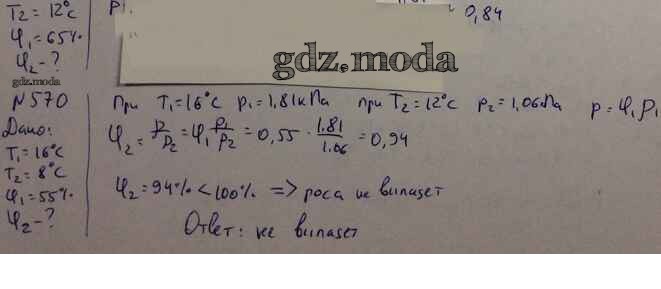 T₂ = 12°C
P1
0,84
φ₁ = 65%
φ₂ - ?
gdz.moda
gdz.moda
N 570
Дано:
T₁ = 16°C
T₂ = 8°C
φ₁ = 55%
φ₂ - ?
при T₁ = 16°C p₁ = 1,81 кПа при T₂ = 12°C p₂ = 1,06 кПа p = φ₁p₁
φ₂ = p/p₂ = φ₁ p₁/p₂ = 0,55 · 1.81/1.06 = 0,94
φ₂ = 94% < 100% => роса не выпадет
Ответ: не выпадет